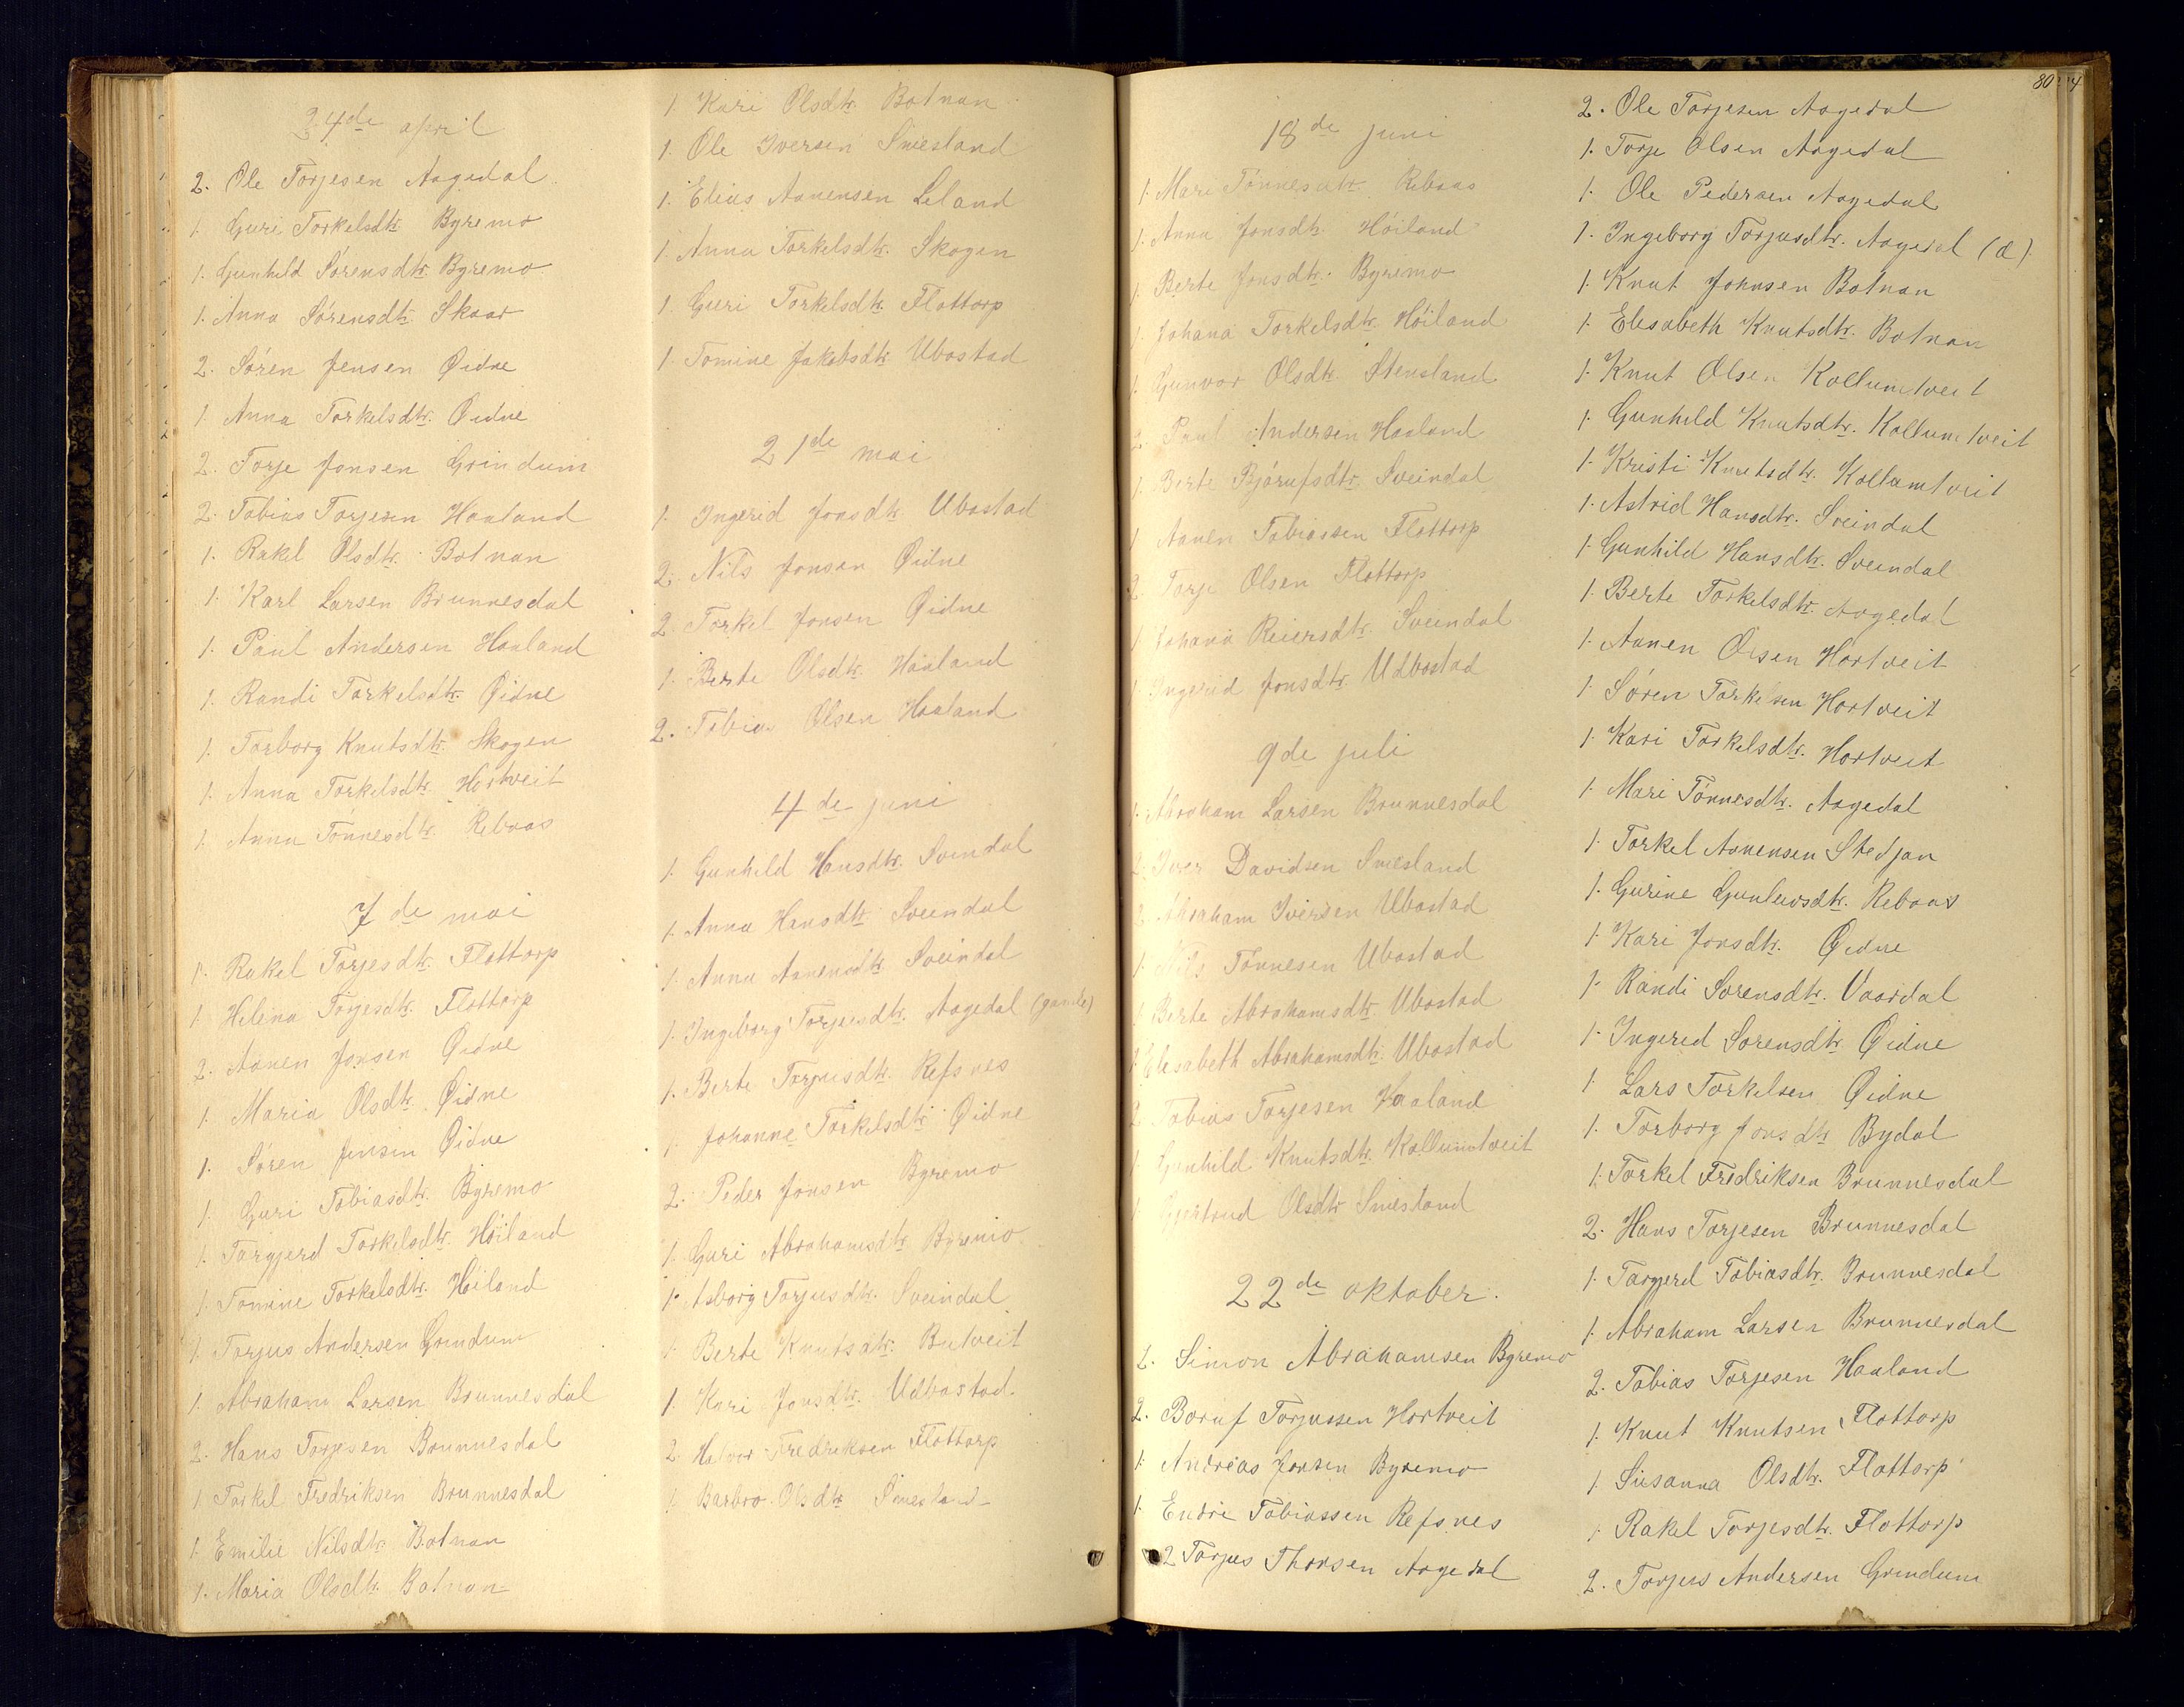 24de april
2. Ole Torjesen Aagedal
1. Guri Torkelsdtr. Byremo
1. Gunhild Sørensdtr. Byremo
1. Anna Sørensdtr. Skaar
2. Søren Jensen Øidne
1. Anna Torkelsdtr. Øidne
2. Torje Jonsen Grindum
2. Tobias Torjesen Haaland
1. Rakel Olsdtr. Botnan
1. Karl Larsen Brunnesdal
1. Paul Andersen Haaland
1. Randi Torkelsdtr. Øidne
1. Torborg Knutsdtr. Skogen
1. Anna Torkelsdtr. Hortveit
1. Anna Tønnesdtr. Rebaas
7de mai
1. Rakel Torjesdtr. Flottorp
1. Helena Torjesdtr. Flottorp
2. Aanen Jonsen Øidne
1. Maria Olsdtr. Øidne
1. Søren Jensen Øidne
1. Guri Tobiasdtr. Byremo
1. Targjerd Torkelsdtr. Høiland
1. Tomine Torkelsdtr. Høiland
1. Torjus Andersen Grindum
1. Abraham Larsen Brunnesdal
2. Hans Torjesen Brunnesdal
1. Torkel Fredriksen Brunnesdal
1. Emilie Nilsdtr. Botnan
1. Maria Olsdtr. Botnan
1. Kari Olsdtr. Botnan
1. Ole Iversen Smesland
1. Elias Aanensen Leland
1. Anna Torkelsdtr. Skogen
1. Guri Torkelsdtr. Flottorp
1. Tomine Jakobsdtr. Ubostad
21de mai
1. Ingerid Jonsdtr. Ubostad
2. Nils Jonsen Øidne
2. Torkel Jonsen Øidne
1. Berte Olsdtr. Haaland
2. Tobias Olsen Haaland
4de juni
1. Gunhild Hansdtr. Sveindal
1. Anna Hansdtr. Sveindal
1. Anna Aanensdtr. Sveindal
1. Ingeborg Torjusdtr. Aagedal (gamle)
1. Berte Torjusdtr. Refsnes
1. Johanne Torkelsdtr. Øidne
2. Peder Jonsen Byremo
1. Guri Abrahamsdtr. Byremo
1. Asborg Torjusdtr. Sveindal
1. Berte Knutsdtr. Butveit
1. Kari Jonsdtr. Udbostad
2. Halvor Fredriksen Flottorp
1. Barbro Olsdtr. Smesland
80
18de juni
1. Mari Tønnesdtr. Rebaas
1. Anna Jonsdtr. Høiland
1. Berte Jonsdtr. Byremo
1. Johana Torkelsdtr. Høiland
1. Gunvor Olsdtr. Stensland
2. Paul Andersen Haaland
1. Berte Bjórufsdtr. Sveindal
1. Aanen Tobiassen Flottorp
2. Torje Olsen Flottorp
1. Johana Reiersdtr. Sveindal
1. Ingerid Jonsdtr. Udbostad
9de juli
1. Abraham Larsen Brunnesdal
2. Iver Davidsen Smesland
2. Abraham Iversen Ubostad
1. Nils Tønnesen Ubostad
1. Berte Abrahamsdtr. Ubostad
1. Elesabeth Abrahamsdtr. Ubostad
2. Tobias Torjesen Haaland
1. Gunhild Knutsdtr. Kollumtveit
1. Gjertrud Olsdtr. Smesland
22de oktober.
2. Simon Abrahamsen Byremo
2. Boruf Torjussen Hortveit
1. Andreas Jonsen Byremo
1. Endre Tobiassen Refsnes
2 Torjus Thorsen Aagedal
2. Ole Torjesen Aagedal
1. Torje Olsen Aagedal
1. Ole Pedersen Aagedal
1. Ingeborg Torjusdtr. Aagedal (æ).
1. Knut Johnsen Botnan
1. Elesabeth Knutsdtr. Botnan
1. Knut Olsen Kollumtveit
1. Gunhild Knutsdtr. Kollumtveit
1. Kristi Knutsdtr. Kollumtveit
1. Astrid Hansdtr. Sveindal
1. Gunhild Hansdtr. Sveindal
1. Berte Torkelsdtr. Aagedal
1. Aanen Olsen Hortveit
1. Søren Torkelsen Hortveit
1. Kari Torkelsdtr. Hortveit
1. Mari Tønnesdtr. Aagedal
1. Torkel Aanensen Stedjan
1. Gurine Gunlevsdtr. Rebaas
1. Kari Jonsdtr. Øidne
1. Randi Sorensdtr. Vaardal
1. Ingerid Sorensdtr. Øidne
1. Lars Torkelsen Øidne
1. Torborg Jonsdtr. Bydal
1. Torkel Fredriksen Brunnesdal
2. Hans Torjesen Brunnesdal
1. Targjerd Tobiasdtr. Brunnesdal
1. Abraham Larsen Brunnesdal
2. Tobias Torjesen Haaland
1. Knut Knutsen Flottorp
1. Susanna Olsdtr. Flottorp
1. Rakel Torjesdtr. Flottorp
2. Torjus Andersen Grindum